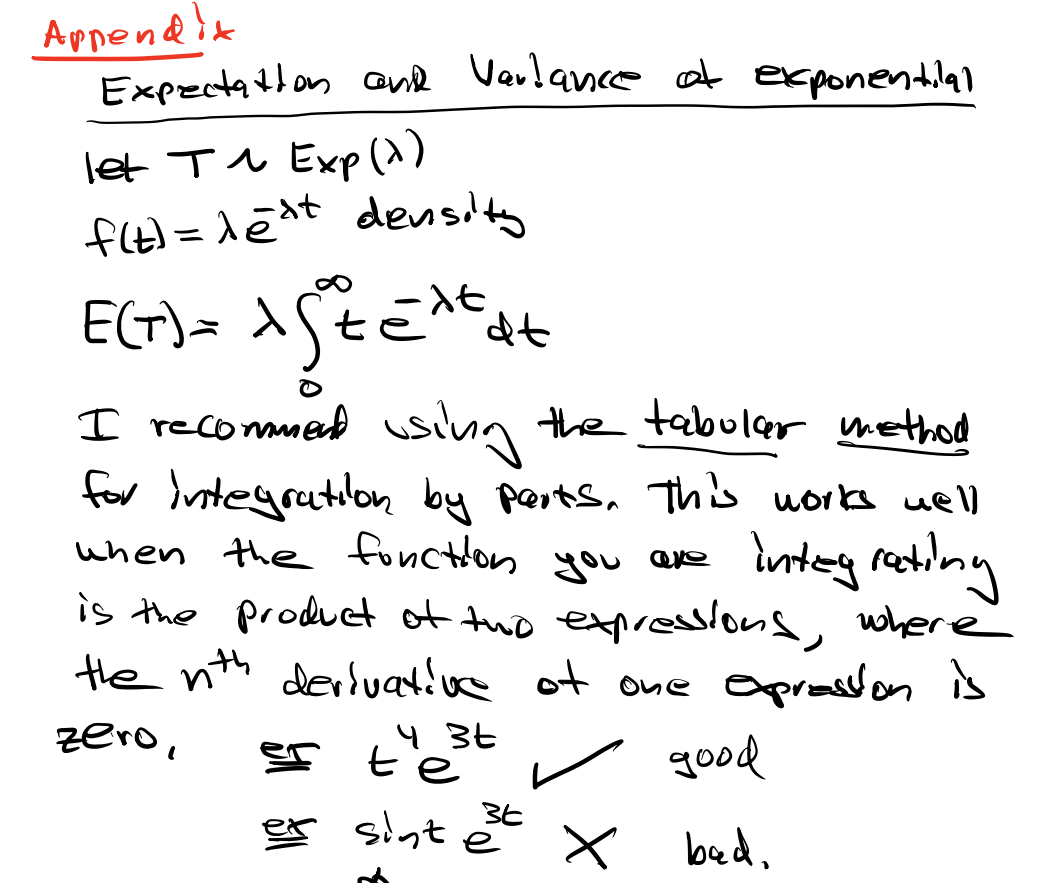 Appendix
Expectation and Variance of exponential
let T ~ Exp(λ)
f(t) = λe^{-λt} density
E(T) = λ∫_0^∞ t e^{-λt} dt
I recommend using the tabular method
for integration by parts. This works well
when the function you are integrating
is the product of two expressions, where
the n^{th} derivative of one expression is
zero.
ex t^4 e^{3t} ✓ good
ex sint e^{3t} ✗ bad.